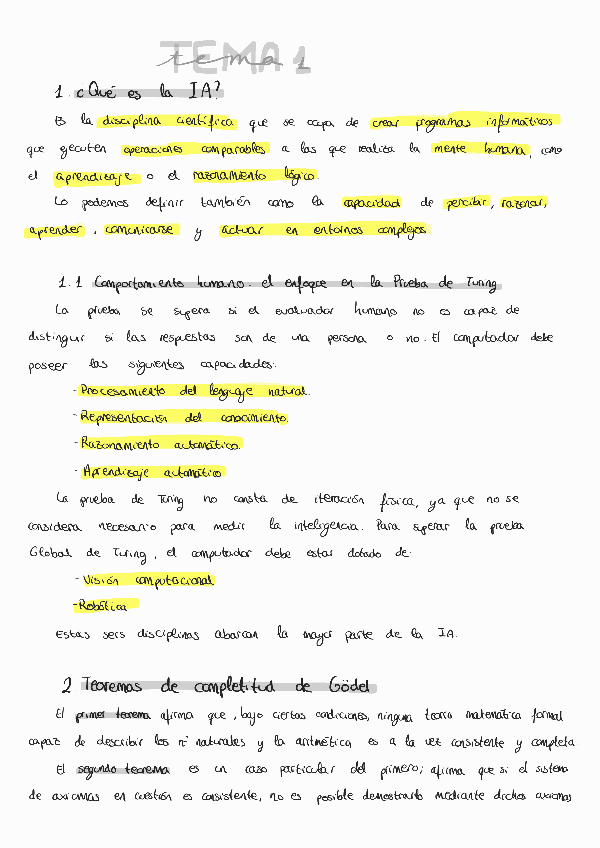 TEMA 1
tema 1
1. ¿Qué es la IA?
Es la disciplina científica que se ocupa de crear programas informáticos
que ejecuten operaciones comparables a las que realiza la mente humana, como
el aprendizaje o el razonamiento lógico.
Lo podemos definir también como la capacidad de percibir, razonar,
aprender, comunicarse y actuar en entornos complejos.
1.1 Comportamiento humano: el enfoque en la Prueba de Turing
La prueba se supera si el evaluador humano no es capaz de
distinguir si las respuestas son de una persona o no. El computador debe
poseer las siguientes capacidades:
- Procesamiento del lenguaje natural.
- Representación del conocimiento.
- Razonamiento automático.
- Aprendizaje automático
La prueba de Turing no consta de iteración física, ya que no se
considera necesario para medir la inteligencia. Para superar la prueba
Global de Turing, el computador debe estar dotado de:
- Visión computacional
- Robótica
Estas seis disciplinas abarcan la mayor parte de la IA.
2 Teoremas de completitud de Gödel
El primer teorema afirma que, bajo ciertas condiciones, ninguna teoría matemática formal
capaz de describir los nº naturales y la aritmética es a la vez consistente y completa
El segundo teorema es un caso particular del primero; afirma que si el sistema
de axiomas en cuestión es consistente, no es posible demostrarlo mediante dichos axiomas